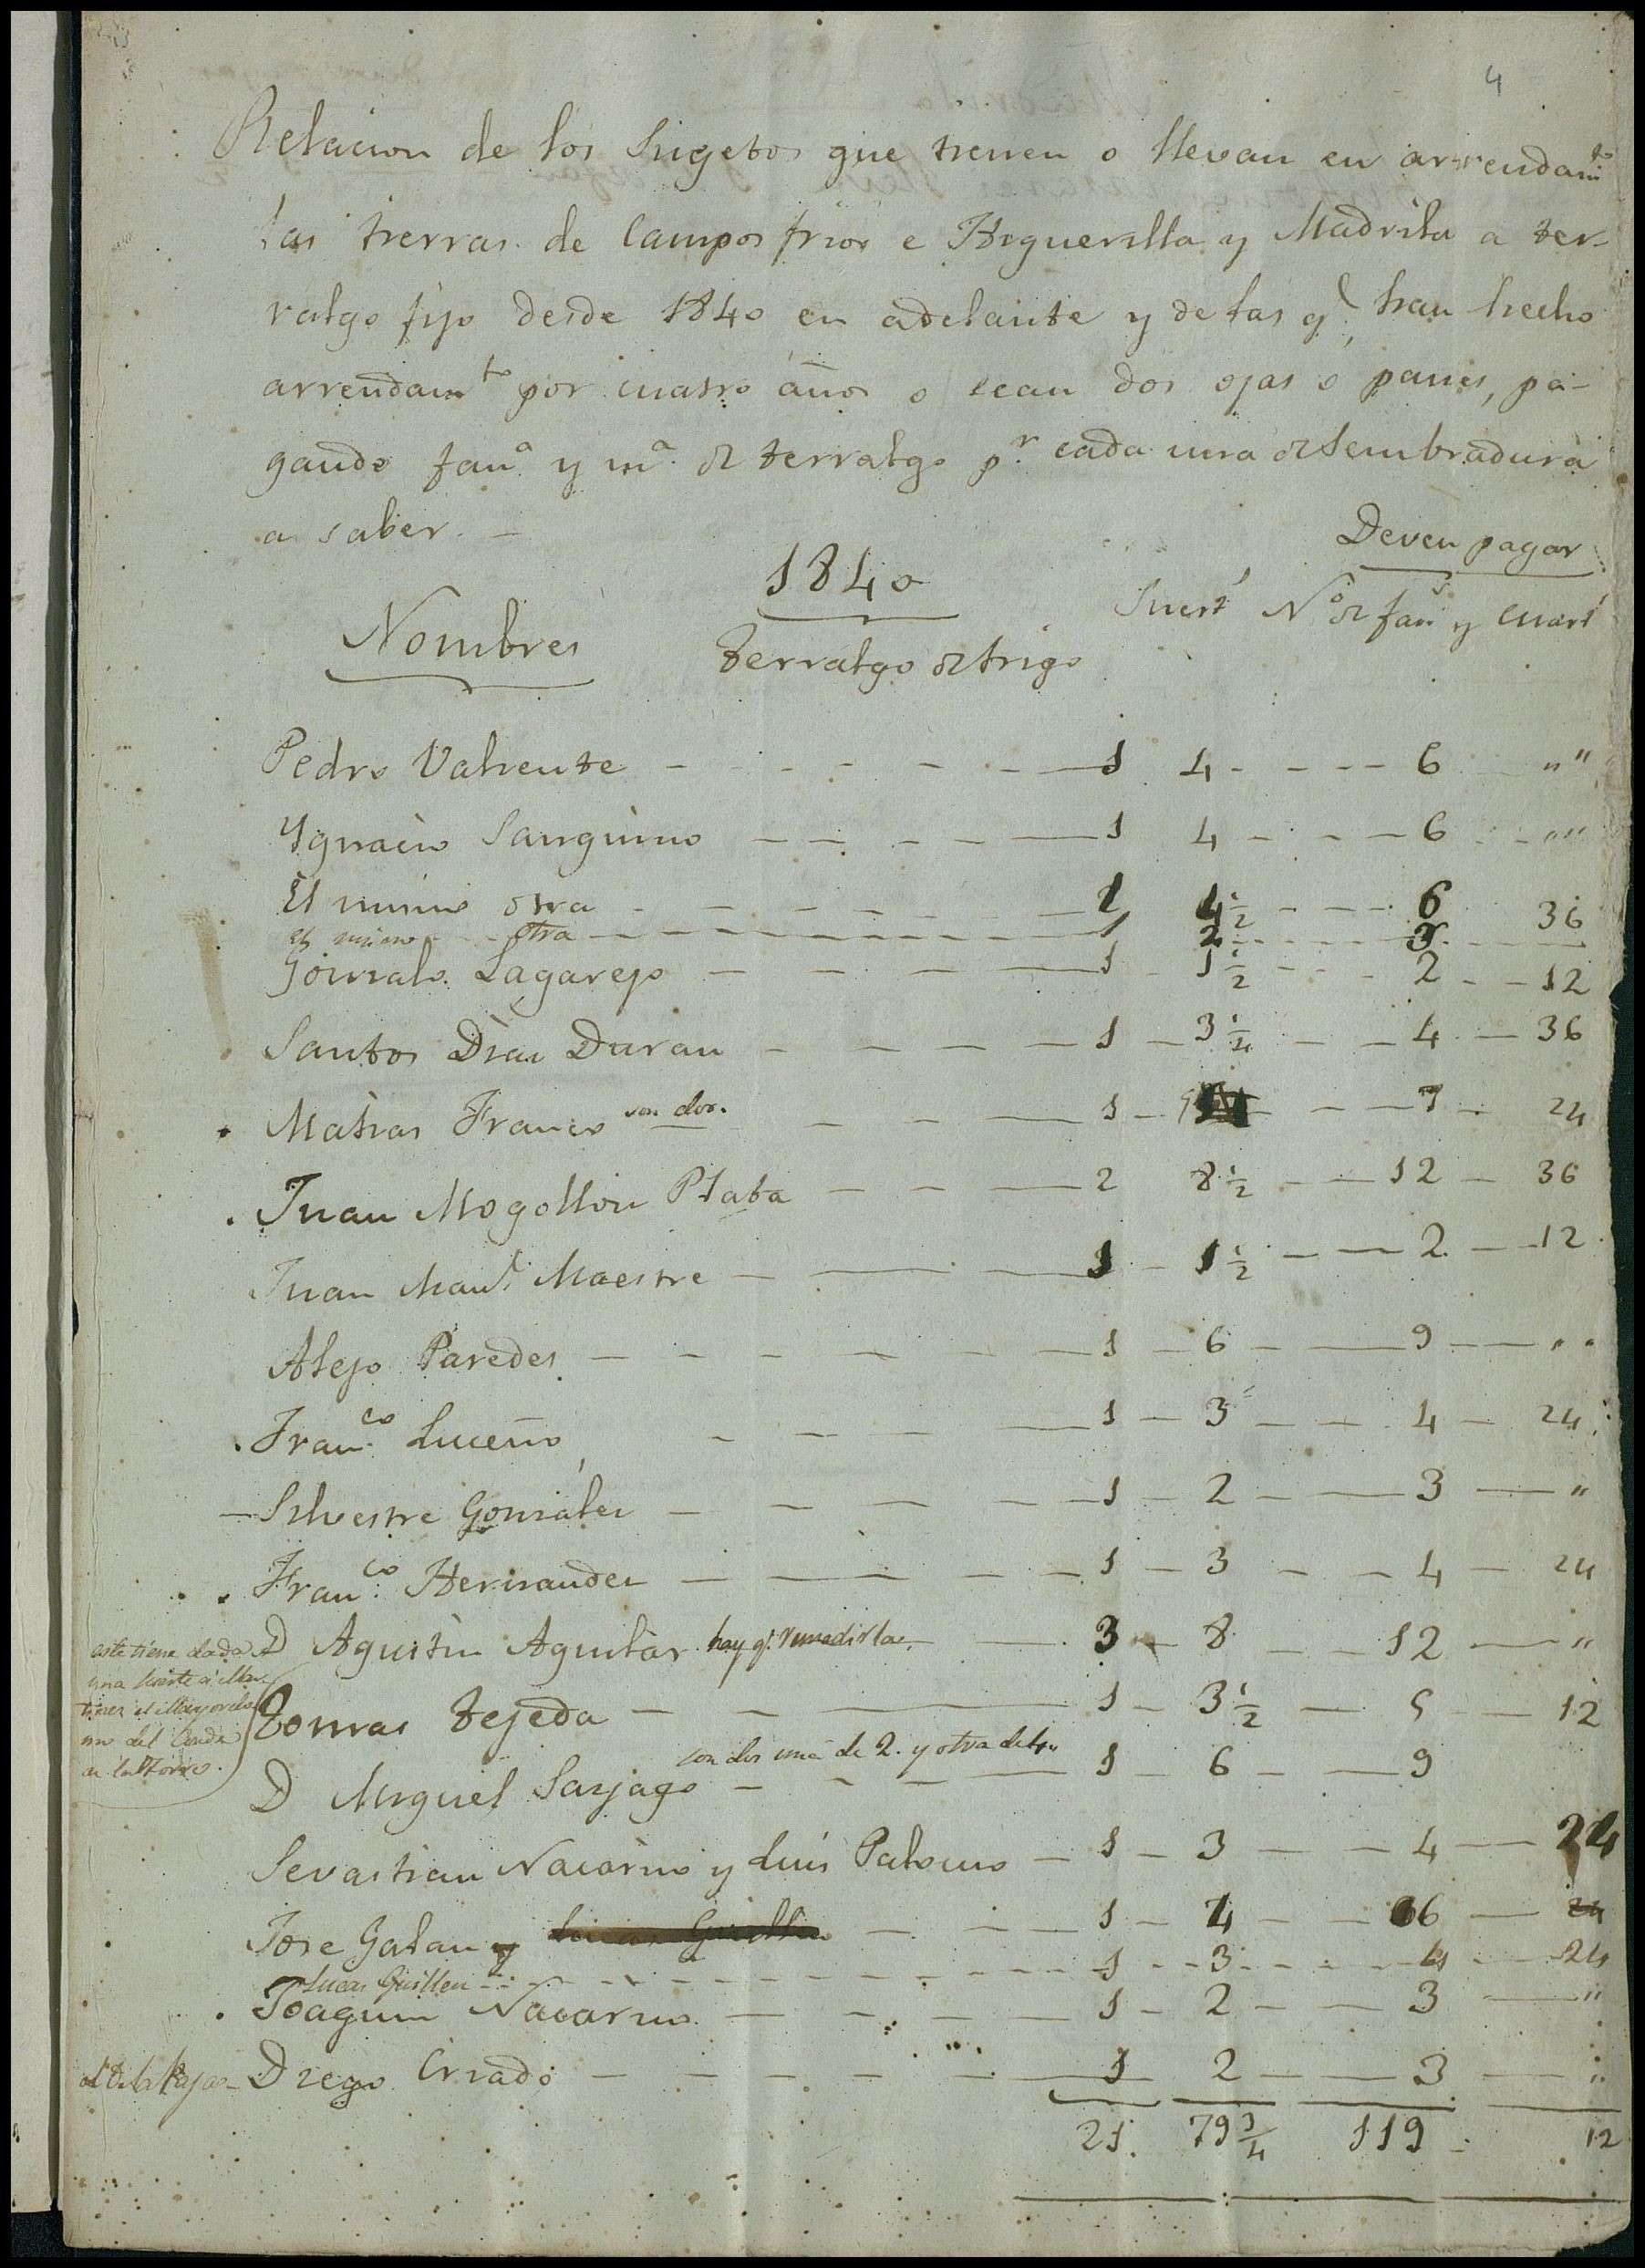 4
Relacion de los Sugetos que tienen o llevan en arrendamto
las tierras de Campos frios e Higuerilla y Madrila a ter-
ratgo fijo desde 1840 en adelante y de las q.e han hecho
arrendamto por cuatro años o sean dos ojas ó panes, pa-
gando fan.a y m.a de terratgo p.r cada una de sembradura
a saber. —
Deven pagar
1840
Nombres Terratgo de trigo Suert.s N.o de fan.s y cuart.s
Pedro Valiente — 1 4 — 6 " "
Ygnacio Sanguino — 1 4 — 6 " "
El mismo otra — 1 4 1/2 — 6 36
El mismo otra — 1 2 — 3
Gonzalo Lagarejo — 1 1 1/2 — 2 — 12
Santos Dias Duran — 1 — 3 1/4 — 4 — 36
Matias Franco son dos. — 1 — 7 — 24
Juan Mogollon Plata — 2 8 1/2 — 12 — 36
Juan Man.l Maestre — 1 — 1 1/2 — 2 — 12
Alejo Paredes — 1 — 6 — 9 — " "
Fran.co Luceño — 1 — 3 — 4 — 24
— Silvestre Gonzales — 1 — 2 — 3 — "
Fran.co Hernandez — 1 — 3 — 4 — 24
D Agustin Aguilar hay q.e — 3 — 8 — 12 — "
este tiene dada
una suerte á
Tomas Tejeda — 1 — 3 1/2 — 5 — 12
del Conde
D Miguel Sarjago son dos una de 2. y otra de 4 — 1 — 6 — 9
Sevastian Nacarino y Luis Palomo — 1 — 3 — 4 — 24
Jose Galan y — 1 — 4 — 6 — 24
Lucas Guillen — 1 — 3 — 4 — 24
Joaquin Nacarino — 1 — 2 — 3 — "
Diego Criado — 1 2 — 3 — "
21. 79 3/4 119 — 12